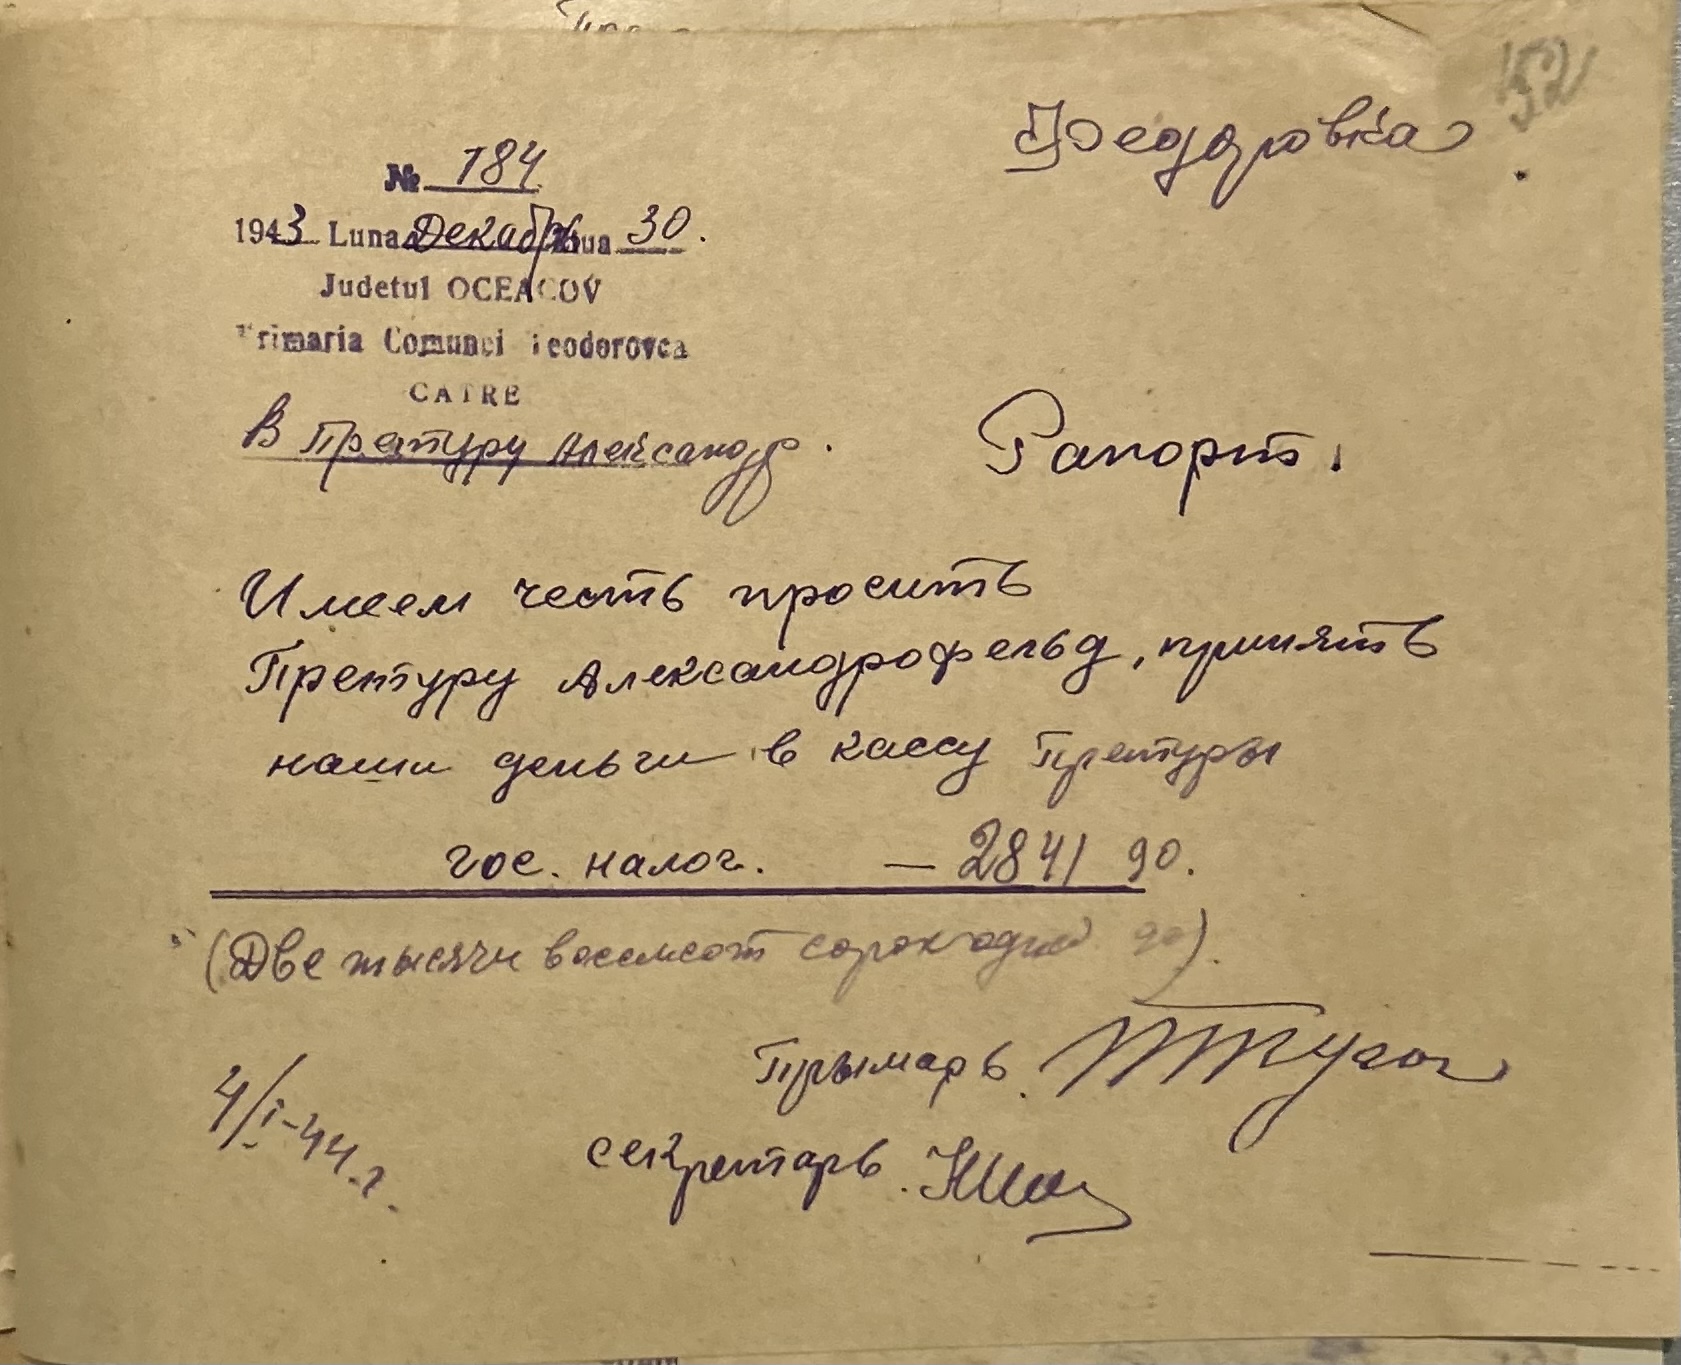 52
Феодоровка
№ 184
1943 Luna Декабрь Ziua 30.
Judetul OCEACOV
Primaria Comunei Teodorovca
CATRE
В Претуру Александр.
Рапорт.
Имеем честь просить
Претуру Александрофельд, принять
наши деньги в кассу Претуры
гос. налог. — 2841 90.
(Две тысячи восемсот сорок один 90).
Прымарь
секретарь
4/I-44 г.